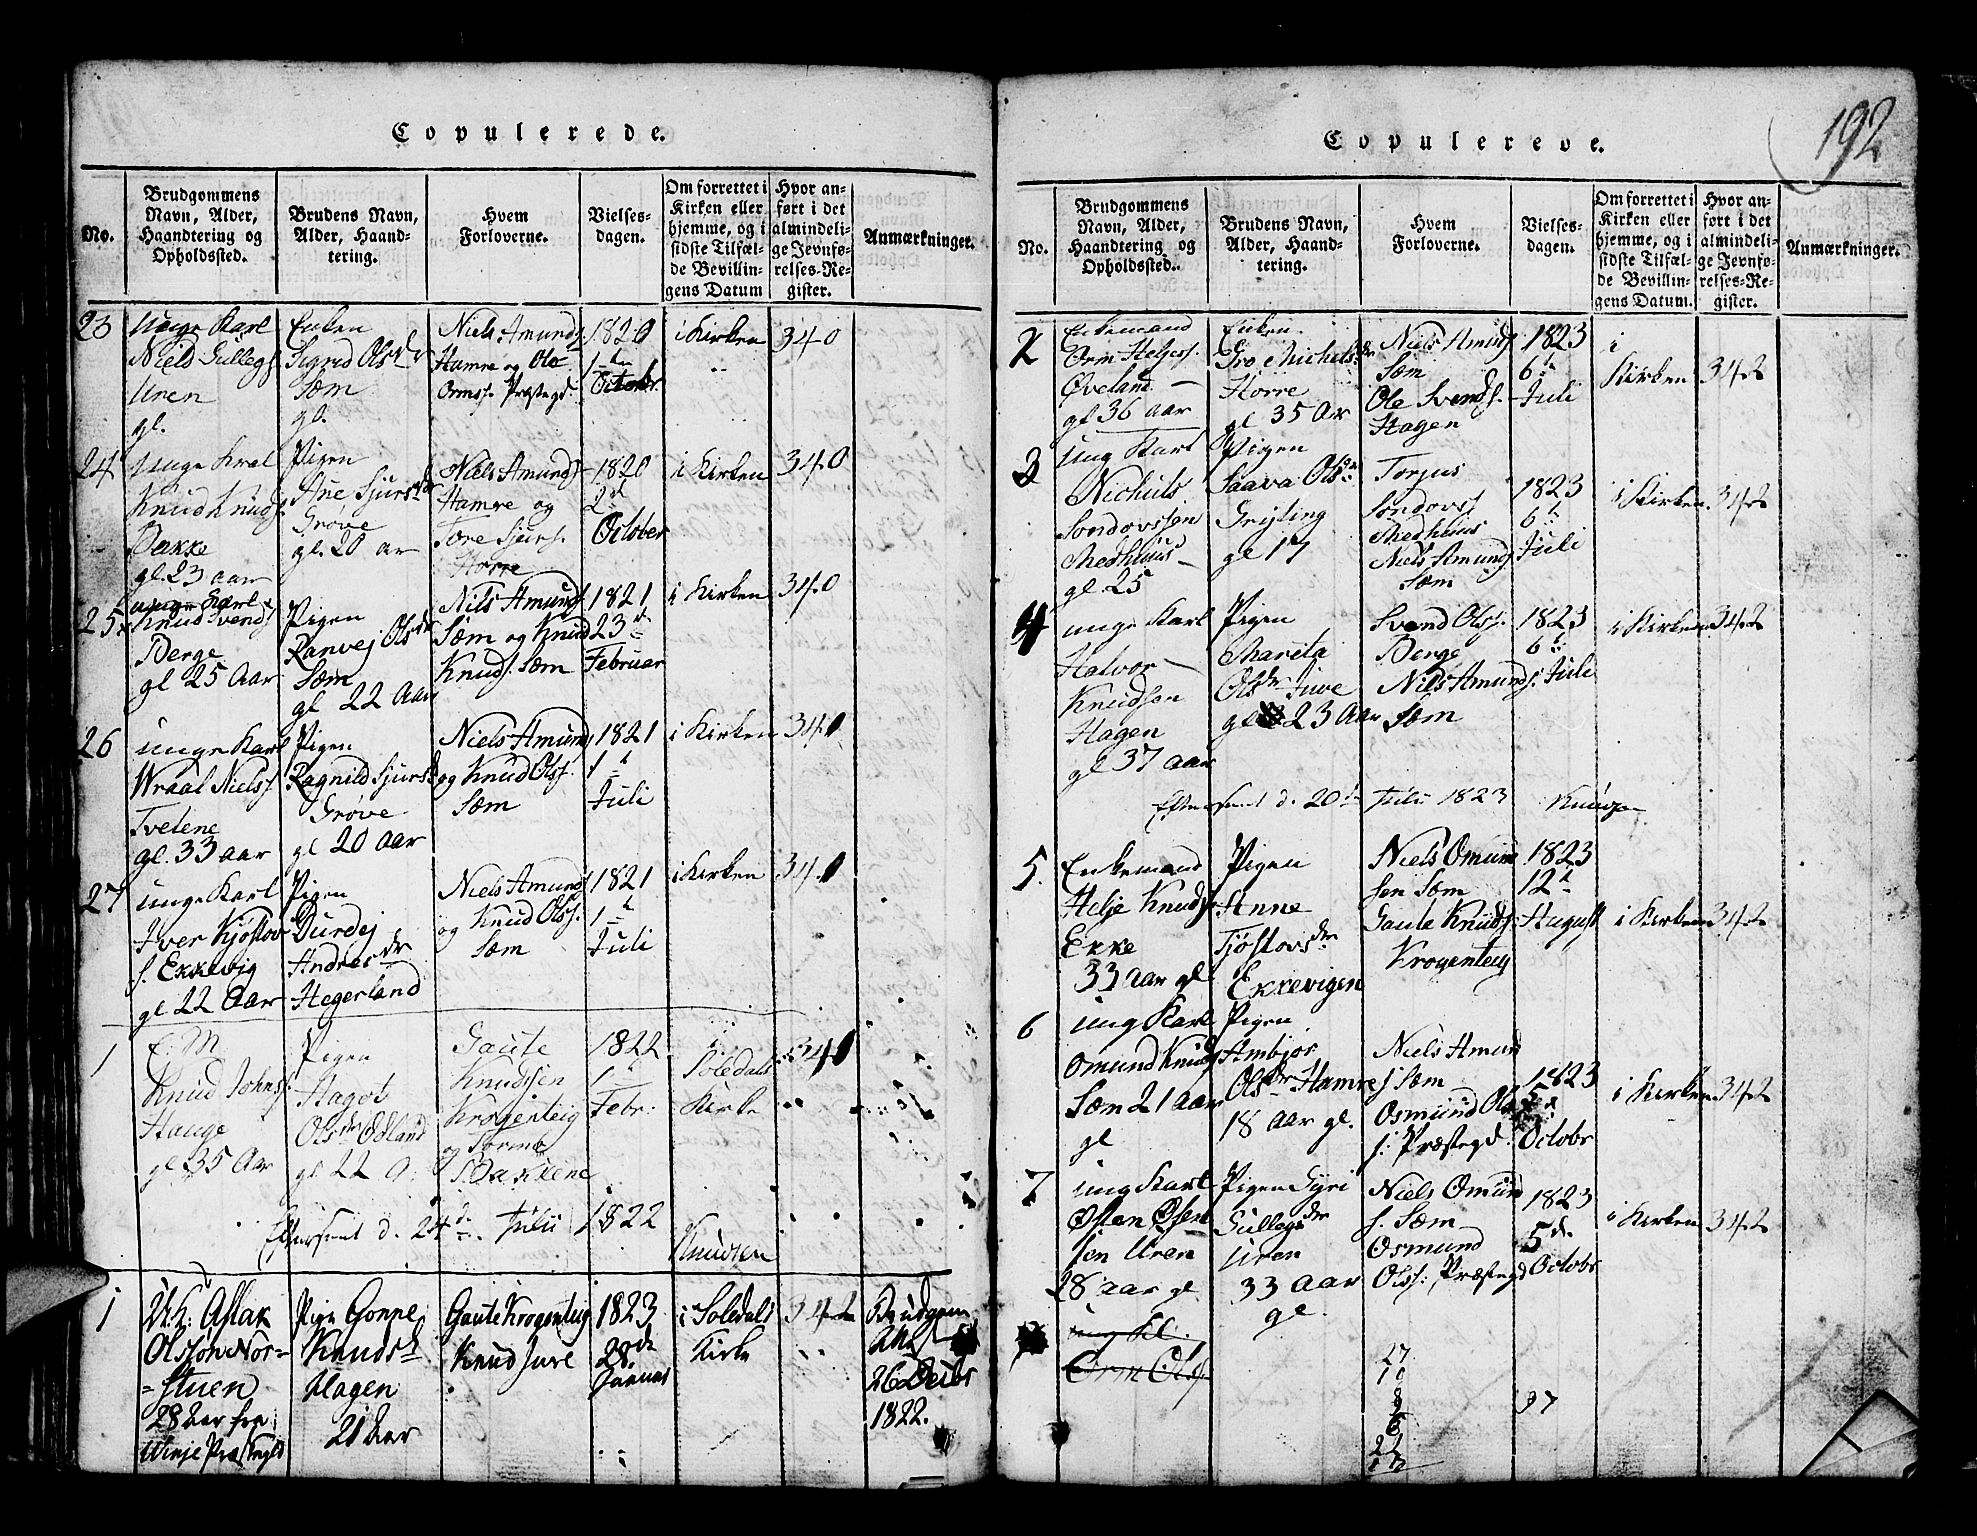 Copulerede.
No.
Brudgommens Navn, Alder, Haandtering og Opholdssted.
Brudens Navn, Alder, Haandtering.
Hvem Forloverne.
Vielses-dagen.
Om forrettet i Kirken eller hjemme, og i sidste Tilfælde Bevillingens Datum
Hvor anført i det almindelige Jevnførelses-Register.
Anmærkninger.
23
unge Karl
Niels Gullegs.
Uren
gl.
Enken
Sigrid Olsdr
Sæm
gl.
Niels Amunds.
Hamre og Ole
Ormss. Præstegd.
1820
1de
Octobr.
i Kirken
340
24
unge Kral
Knud Knuds.
Bakke
gl. 23 aar
Pigen
Ane Sjursdr
Grøve
gl. 20 ar
Niels Amunds.
Hamre og
Tore Sjurs.
Horre
1820
2d
October
i Kirken
340
25
unge Karl
Knud Svends.
Berge
gl 25 Aar
Pigen
Ranvej Olsdr
Sæm
gl 22 Aar
Nils Amunds.
Sæm og Knud
Knuds. Sæm
1821
23d
Februar
i Kirken
340
26
unge Karl
Wraal Niels.
Tvetene
gl. 33 aar
Pigen
Ragnild Sjursd
Grøve
gl 20 Aar
Niels Amunds.
og Knud Olss.
Sæm
1821
1t
Juli
i Kirken
340
27
unge Karl
Iver Kjøstov
s. Ekkevig
gl 22 Aar
Pigen
Durdej
Andresdr
Hegerland
Niels Amunds.
og Knud Olss.
Sæm
1821
1t
Juli
i Kirken
340
1
E. M.
Knud Johns.
Hauge
gl 35 Aar
Pigen
Aagot
Olsdr Odland
gl 22 A.
Gaute
Knudssen
Krogenteig
og Tormo
Bakkene
1822
1t
Febr:
i
Soledals
Kirke
340
Eftersent d. 24de Julii 1822
Knudsen
1
U. K: Aslak
Olssøn Nor=
=stuen
28 Aar fra
Winje Præstegjld
Pige Gonpe
Knudsd
Hagen
21 Aar
Gaute Krogenteig
Knud Jure
1823
28de
Januar
i Soledals
Kirke
342
Brudgom
26 Decbr
1822.
Copulerede.
192
No.
Brudgommens Navn, Alder, Haandtering og Opholdssted.
Brudens Navn, Alder, Haandtering.
Hvem Forloverne.
Vielses-dagen.
Om forrettet i Kirken eller hjemme, og i sidste Tilfælde Bevillingens Datum.
Hvor anført i det almindelige Jevnførelses-Register.
Anmærkninger.
2
Enkemand
Orm Heljess.
Øveland
gl 36 aar
Enken
Gro Michelsdr
Horre
gl 35 Ar
Niels Amunds
Sæm
Ole Svends.
Hagen
1823
6t
Juli
i
Kirken
342
3
ung Karl
Nichuls
Sondovssen
Medhuus
gl. 25
Pigen
Saava Olsdr
Grijting
gl 17
Torjus
Sondovss
Medhuus
Niels Amunds.
Sæm
1823
6t
Juli
i Kirken
342
4
unge Karl
Halvor
Knudsen
Hagen
gl 37 aar
Pigen
Mareta
Olsdr Juve
gl 23 Aar
Svend Olss.
Berge
Niels Amunds.
Sæm
1823
6t
Juli
i Kirken
342
Eftersent d. 20de Julii 1823 Knudsen
5.
Enkemand
Helje Knuds.
Ekke
33 aar gl
Pigen
Anne
Tjøstovsdr
Ekkevigen
Niels Omund
sen Sæm
Gaute Knuds.
Krogenteig
1823
12t
August
i Kirken
342
6
ung Karl
Omund Knuds
Sæm 21 aar
gl
Pigen
Ambjor
Olsdr Hamre
18 aar gl.
Niels Amun
s. Sæm
Osmund Ols
s: Præstegd.
1823
5d
Octobr
i Kirken
342
7
ung Karl
Østen Øsen
sen Uren
28 aar gl
Pigen Gyri
Gullegsdr
Uren
33 Aar
gl
Niels Omund
s. Sæm
Osmund
Olss: Præstegd
1823
5de
Octobr
i Kirken
342
ung Kl.
Orm Olss.
27
10
37